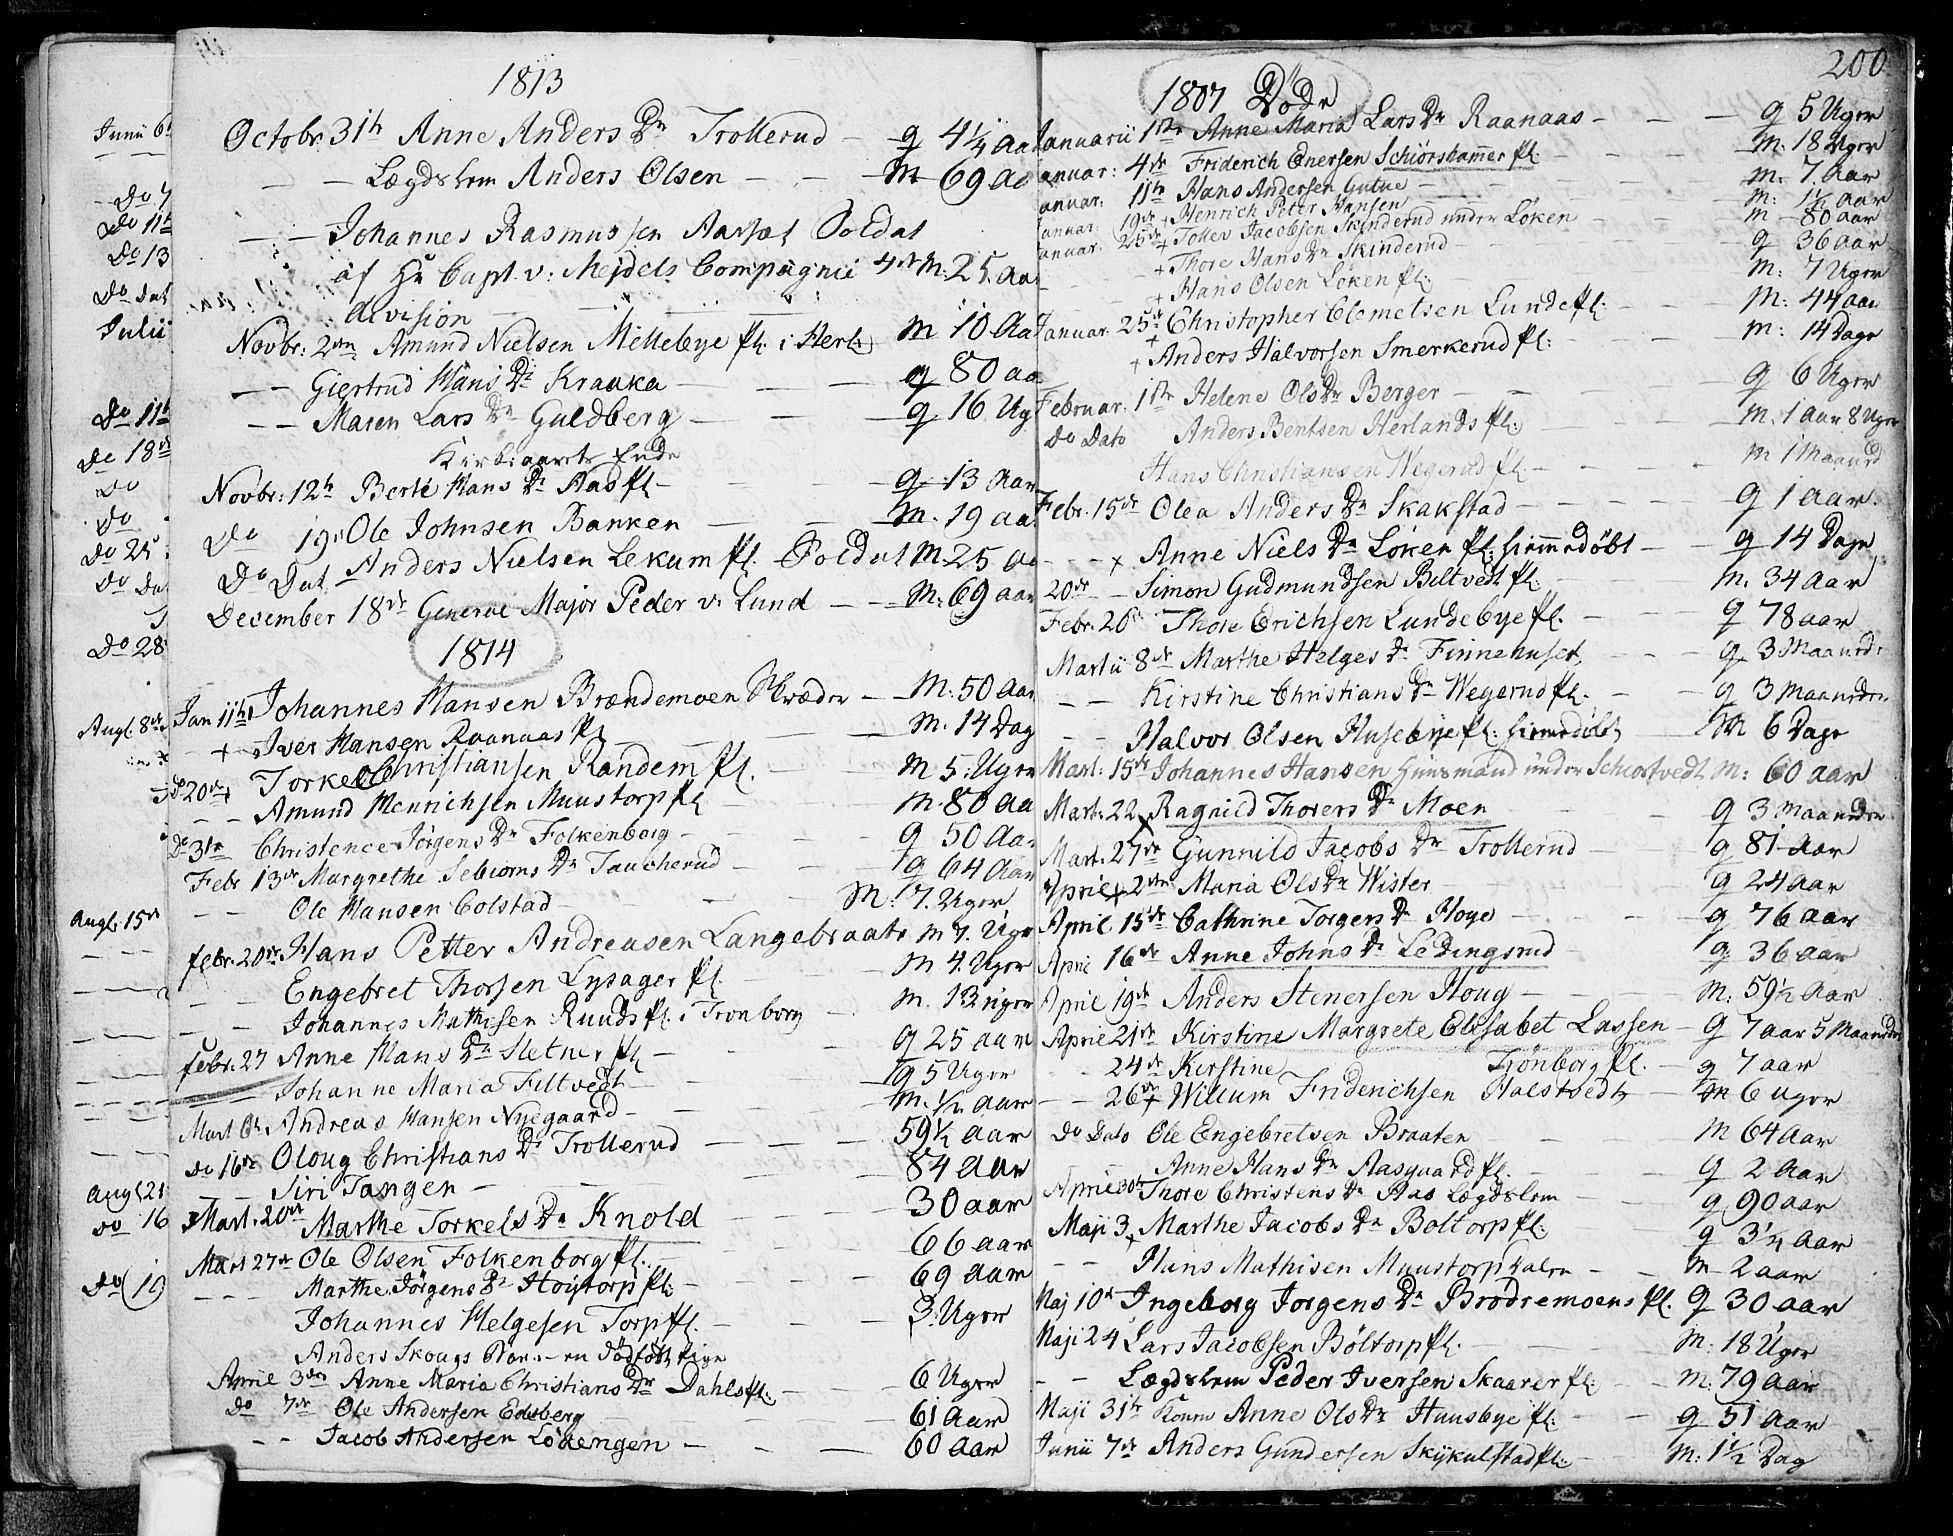 Junii 6
Do 7
Do 11h
Do 13
Do Dat
Julii
Do 11h
Do 18de
Do
Do
Do 25
Do Da
Do 28
Augl. 8de
Augl. 15de
Augl. 21
Do 16
Do 19
1813
Octobr. 31h Anne Anders Dr Trollerud — q 4¼ Aa
— — Lægdslem Anders Olsen — — — M 69 Aa
— — Johannes Rasmussen Aarsæt Soldat
af Hr Capt. v: Mejdels Compagnii 4de M: 25. Aa
division
Novbr: 2den Amund Nielsen Millebye pl. i Herl: M 10 Aa
— — Giertrud Hans Dr Kraaka — — — q 80 aa
— — Maren Lars Dr Guldberg — — — q. 16 Ug
Kirk: aarets Ende
Novbr: 12h Berte Hans Dr Aas pl — — q 13 Aar
Do 19de Ole Johnsen Banken — — M. 19 aa
Do Dat Anders Nielsen Lekum pl. Soldat M 25 Aa
December 18de General Major Peder v. Lund — — M: 69 aar
1814
Jan 11h Johannes Hansen Brændemoen Skræder — M. 50 Aar
+ Iver Hansen Raanaas pl — — — M. 14 Dag
Do 20de + Torkel Christiansen Randem pl. — — M 5. Uger
— — Amund Henrichsen Muustorp pl — M. 80 aa
Do 31te Christence Jørgens Dr Folkenborg — — q 50 Aar
Febr 13de Margrethe Sebiørns Dr Taucherud — — q 64 Aar
— — Ole Hansen Colstad — — — M: 7. Uger
febr. 20de Hans Petter Andreasen Langebraate M 7. Uger
— — Engebret Thorsen Lysager pl. — — M 4. Uger
— — Johannes Mathisen Ruuds pl. i Tronborg — M. 13 uger
febr. 27 Anne Hans Dr Sletner pl — — — q 25 aar
— — Johanne Maria Filtvedt — — — q 5 Uger
Mart 6h Andreas Hansen Nyegaard — — — M. ½ aar
Do 16de Oloug Christians Dr Trollerud — — — 59½ aar
— — Siri Tangen — — — 84 aar
Mart. 20de Marthe Torkels Dr Knold — — — 30 aar
Mart 27de Ole Olsen Folkenborg pl. — — — 66 aar
— — — Marthe Jørgens Dr Høytorp pl: — — — 69 aar
Johannes Helgesen Torp pl. — — — 3. Uger
Anders Skougs Bar: — en Dødfødt Pige
April 3die Anne Maria Christians Dr Dahls pl: — — 6 Uger
Do 7de Ole Andersen Edsberg — — 61 Aar
— — Jacob Andersen Løkengen — — — 60 aar
200
1807 Døde
Januarii 1ste Anne Maria Lars Dr Raanaas — — — q 5 Uger
Januar: 4de Friderich Enersen Schiørshammer pl: — — — M. 18 Uger
Januar: 11te Hans Andersen Gutue — — — M. 7 Aar
Januar: 19de + Henrich Peter Hansen — — — M: 1½ aar
Januar: 25de + Tollev Jacobsen Skinderud under Løken — — M — 80 aar
+ Thore Hans Dr Skinderud — — — q 36 aar
+ Hans Olsen Løken pl. — — — M: 7 Uger
Januar. 25de Christopher Clemetsen Lunde pl. — — M: 44 aar
+ Anders Halvorsen Smerkerud pl: — — M: 14 Dage
Februar. 1ste Helene Ols Dr Berger — — — q 6 Uger
Do Dato Anders Bentsen Herlands pl: — — — M. 1 Aar 8 Uger
Hans Christiansen Wegerud pl — — — M 1 Maaned
Febr. 15de Olea Anders Dr Skakstad — — q 1 aar
— — + Anne Niels Dr Løken pl: hiemmedøbt — q 14 Dage
20de — Simon Gudmundsen Biltvedt pl. — M. 34 aar
Febr. 26de Thore Erichsen Lundebye pl. — q 78 aar
Martii 8de Marthe Helges Dr Finnehuset — — q 3 Maaneder
— — Kirstine Christians Dr Wegerud pl. — — q 3 maaneder
— — Halvor Olsen Husebye pl: hiemmedøbt — M 6 Dage
Mart: 15de Johannes Hansen Huusmand under Schiortvedt M: 60 aar
Mart: 22 Ragnild Thorers Dr Moen — q 3 Maaneder
Mart. 27de Gunnild Jacobs Dr Trollerud — — q 81 aar
Aprile + 2den Maria Ols Dr Wister — — q 24 Aar
April 15de Cathrine Torgers Dr Hoye — — q 76 aar
April 16de Anne Johns Dr Ledingsrud — q. 36 aar
April 19de Anders Stenersen Houg — — — M: 59½ Aar
Aprile 21de Kirstine Margrete Elisabet Lassen — q 7 aar 5 Maaneder
— — 24de Kirstine Trønborg pl. — q 7 aar
— — 26de + Willum Friderichsen Halstvedt — M 6 uger
Do Dato Ole Engebretsen Braaten — — M 64 Aar
Anne Hans Dr Aasgaard pl. — — q 2 Aar
Aprile 30te Thore Christens Dr Aas Lægdslem — q 90 aar
Maji 3 + Marthe Jacobs Dr Boltorp pl: — q 3¼ Aar
— — Hans Mathisen Muustorpdalen — — M 2 aar
Maj 10de Ingeborg Jorgens Dr Brødremoens pl. q 30 aar
Maji 24 Lars Jacobsen Bøltorp pl. — — M: 18 Uger
— — Lægdslem Peder Iversen Skaarer pl: — M: 79 aar
Maji 31te Konen Anne Ols Dr Huusbye pl: — — q 51 aar
Junii 7de Anders Gundersen Skykulstad pl: — — M: 1½ Dag